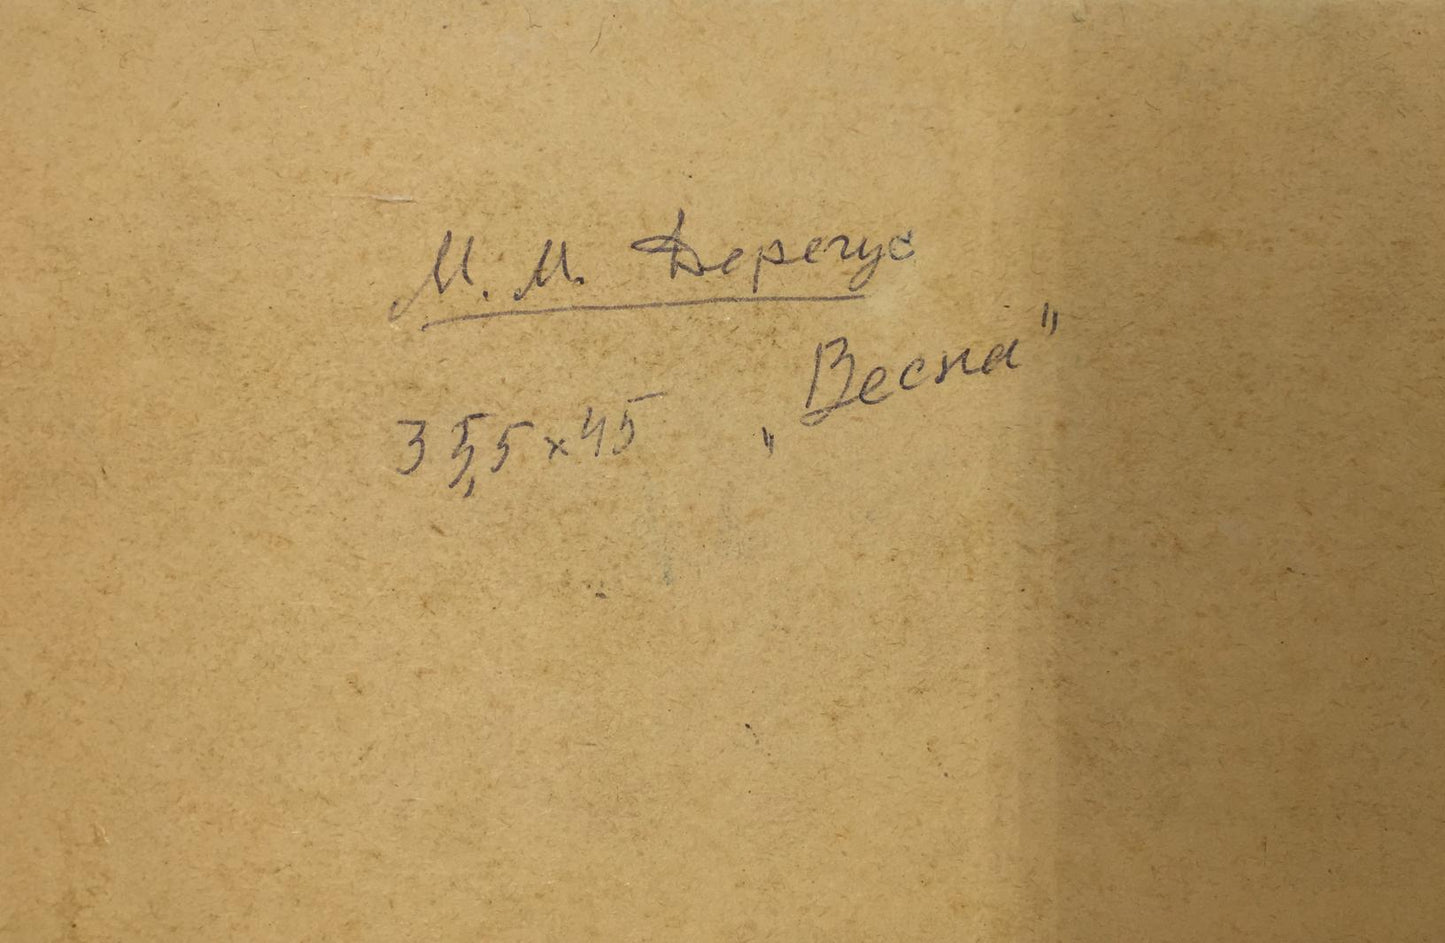 М. М. Дерегус
„Весна"
35,5 × 45